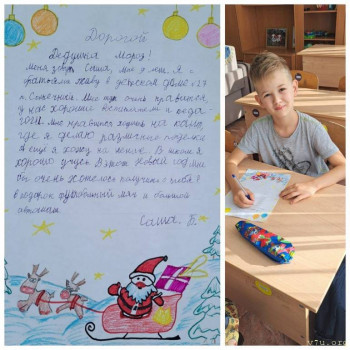 Дорогой
Дедушка Мороз!
меня зовут Саша, мне лет. Я с
братом живу в детском доме №27
п. Солнечный. Мне тут очень нравится,
у нас хорошие воспитатели и педа
гоги. Мне нравится ходить на
где я делаю различные поделки
А ещё я хожу на В школе я
хорошо учусь. В Новый год мне
бы очень хотелось получить от тебя
в подарок футбольный мяч и большой
автомат.
Саша Б.